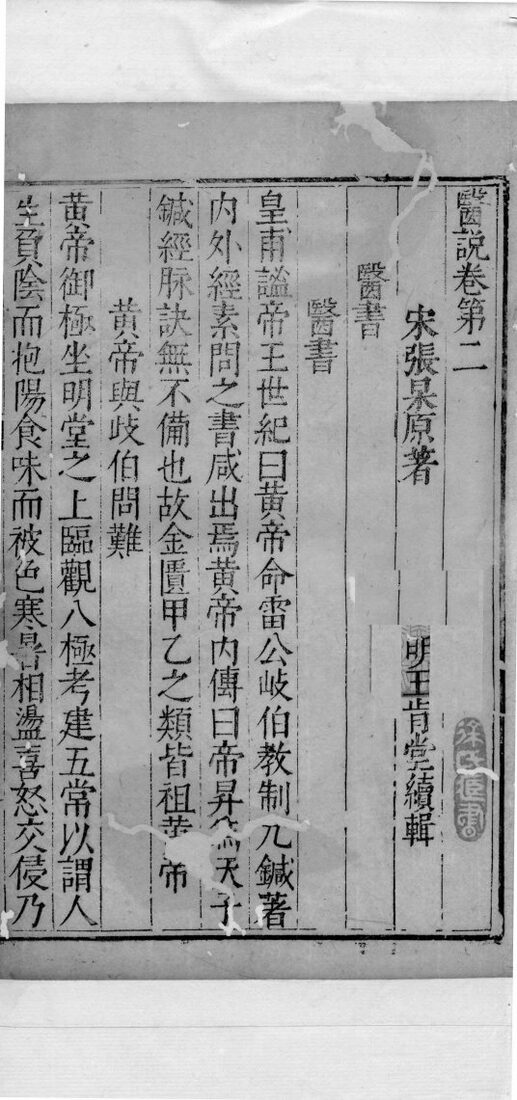 醫說卷第二
宋張杲原著
明王肯堂續輯
醫書
醫書
皇甫謐帝王世紀曰黃帝命雷公岐伯教制九鍼著
內外經素問之書咸出焉黃帝內傳曰帝昇為天子
鍼經脉訣無不備也故金匱甲乙之類皆祖黃帝
黃帝與歧伯問難
黃帝御極坐明堂之上臨觀八極考建五常以謂人
生負陰而抱陽食味而被色寒暑相盪喜怒交侵乃